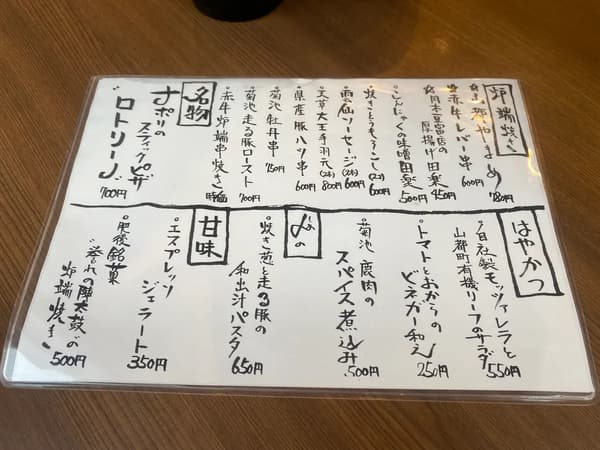 炉端焼き
・山都やまめ 780円
・赤牛レバー串 600円
・岡本豆冨店の
厚揚げ田楽 450円
・こんにゃくの味噌田楽 500円
・焼きとうもろこし(2本) 600円
・雲仙ソーセージ(2本) 600円
・天草大王手羽元(2本) 800円
・県産豚バツ串 600円
・菊池 牡丹串 750円
・菊池 走る豚ロースト 700円
・赤牛炉端串焼き 時価
名物
ナポリの
スティックピザ
"ロトリーノ" 700円
はやかつ
・自社製モッツァレラと
山都町有機リーフのサラダ 550円
・トマトとおからの
ビネガー和え 250円
・菊池 鹿肉の
スパイス煮込み 500円
〆の
・焼き葱と走る豚の
和出汁パスタ 650円
甘味
・エスプレッソ
ジェラート 350円
・肥後銘菓
"誉れの陣太鼓"の
炉端焼き 500円